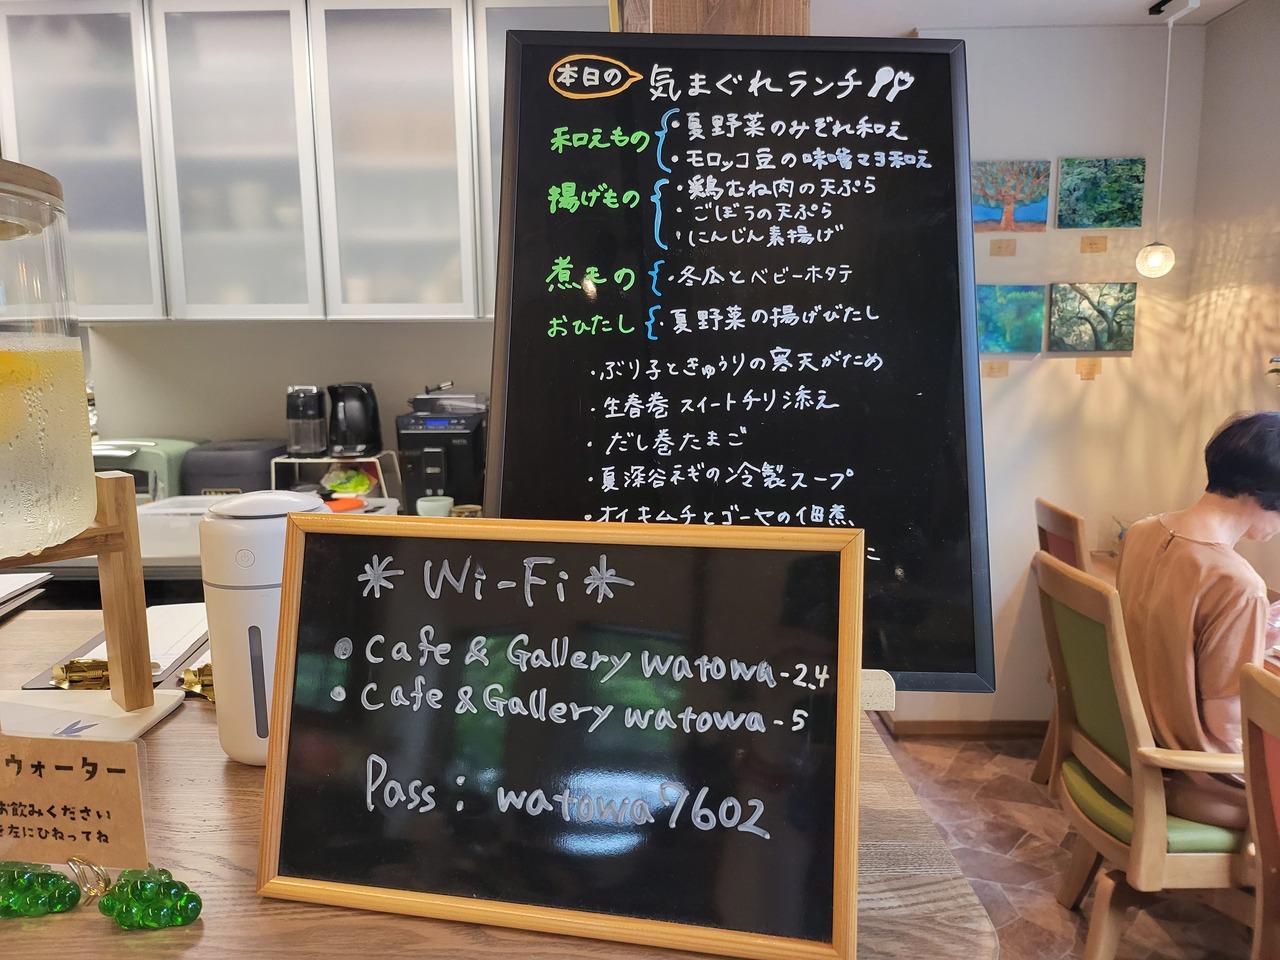 本日の 気まぐれランチ
和えもの
・夏野菜のみぞれ和え
・モロッコ豆の味噌マヨ和え
揚げもの
・鶏むね肉の天ぷら
・ごぼうの天ぷら
・にんじん素揚げ
煮もの
・冬瓜とベビーホタテ
おひたし
・夏野菜の揚げびたし
・ぶり子ときゅうりの寒天がため
・生春巻 スイートチリ添え
・だし巻たまご
・夏深谷ネギの冷製スープ
・オイキムチとゴーヤの佃煮
こ
*Wi-Fi*
●Cafe & Gallery watowa-2.4
●Cafe & Gallery watowa-5
Pass: watowa7602
ウォーター
お飲みください
を左にひねってね